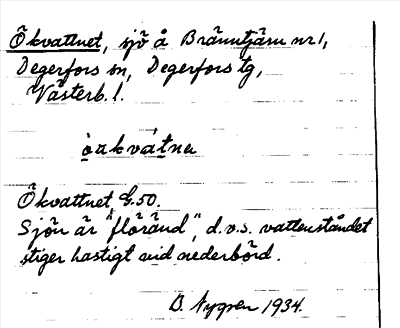 Ökvattnet, sjö å Bränntjärn nr 1,
Degerfors sn, Degerfors tg,
Västerb. l.
Ökvattnet G.50.
Sjön är "floränd", d.v.s. vattenståndet
stiger hastigt vid nederbörd.
O. Nygren 1934.